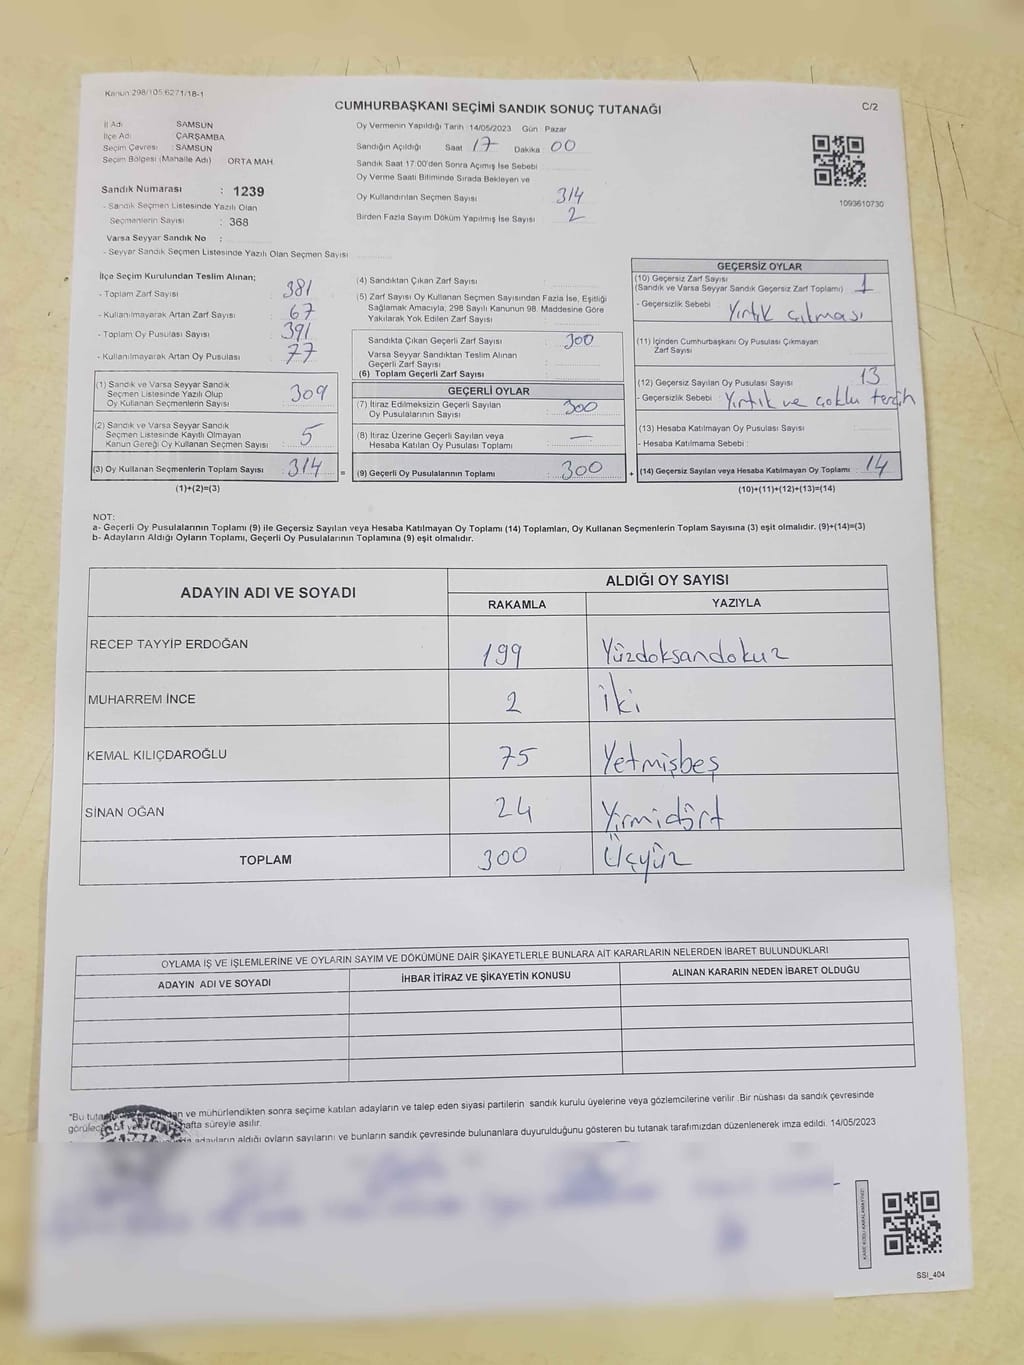 Kanun:298/105,6271/18-1
CUMHURBAŞKANI SEÇİMİ SANDIK SONUÇ TUTANAĞI
C/2
İl Adı SAMSUN
İlçe Adı ÇARŞAMBA
Seçim Çevresi : SAMSUN
Seçim Bölgesi (Mahalle Adı) ORTA MAH.
Sandık Numarası : 1239
- Sandık Seçmen Listesinde Yazılı Olan
Seçmenlerin Sayısı : 368
Varsa Seyyar Sandık No :
- Seyyar Sandık Seçmen Listesinde Yazılı Olan Seçmen Sayısı
Oy Vermenin Yapıldığı Tarih 14/05/2023 Gün Pazar
Sandığın Açıldığı Saat 17 Dakika 00
Sandık Saat 17:00'den Sonra Açılmış İse Sebebi
Oy Verme Saati Bitiminde Sırada Bekleyen ve
Oy Kullandırılan Seçmen Sayısı 314
Birden Fazla Sayım Döküm Yapılmış İse Sayısı 2
1093610730
İlçe Seçim Kurulundan Teslim Alınan;
- Toplam Zarf Sayısı 381
- Kullanılmayarak Artan Zarf Sayısı : 67
- Toplam Oy Pusulası Sayısı : 391
- Kullanılmayarak Artan Oy Pusulası : 77
(1) Sandık ve Varsa Seyyar Sandık
Seçmen Listesinde Yazılı Olup
Oy Kullanan Seçmenlerin Sayısı : 309
(2) Sandık ve Varsa Seyyar Sandık
Seçmen Listesinde Kayıtlı Olmayan
Kanun Gereği Oy Kullanan Seçmen Sayısı : 5
(3) Oy Kullanan Seçmenlerin Toplam Sayısı : 314 =
(1)+(2)=(3)
(4) Sandıktan Çıkan Zarf Sayısı :
(5) Zarf Sayısı Oy Kullanan Seçmen Sayısından Fazla İse, Eşitliği
Sağlamak Amacıyla; 298 Sayılı Kanunun 98. Maddesine Göre
Yakılarak Yok Edilen Zarf Sayısı
Sandıkta Çıkan Geçerli Zarf Sayısı : 300
Varsa Seyyar Sandıktan Teslim Alınan
Geçerli Zarf Sayısı
(6) Toplam Geçerli Zarf Sayısı :
GEÇERLİ OYLAR
(7) İtiraz Edilmeksizin Geçerli Sayılan
Oy Pusulalarının Sayısı : 300
(8) İtiraz Üzerine Geçerli Sayılan veya
Hesaba Katılan Oy Pusulası Toplamı : —
(9) Geçerli Oy Pusulalarının Toplamı : 300 +
GEÇERSİZ OYLAR
(10) Geçersiz Zarf Sayısı
(Sandık ve Varsa Seyyar Sandık Geçersiz Zarf Toplamı) : 1
- Geçersizlik Sebebi : Yırtık çılması
(11) İçinden Cumhurbaşkanı Oy Pusulası Çıkmayan
Zarf Sayısı
(12) Geçersiz Sayılan Oy Pusulası Sayısı : 13
- Geçersizlik Sebebi : Yırtık ve çoklu tercih
(13) Hesaba Katılmayan Oy Pusulası Sayısı :
- Hesaba Katılmama Sebebi :
(14) Geçersiz Sayılan veya Hesaba Katılmayan Oy Toplamı : 14
(10)+(11)+(12)+(13)=(14)
NOT:
a- Geçerli Oy Pusulalarının Toplamı (9) ile Geçersiz Sayılan veya Hesaba Katılmayan Oy Toplamı (14) Toplamları, Oy Kullanan Seçmenlerin Toplam Sayısına (3) eşit olmalıdır. (9)+(14)=(3)
b- Adayların Aldığı Oyların Toplamı, Geçerli Oy Pusulalarının Toplamına (9) eşit olmalıdır.
ADAYIN ADI VE SOYADI ALDIĞI OY SAYISI
RAKAMLA YAZIYLA
RECEP TAYYİP ERDOĞAN 199 Yüzdoksandokuz
MUHARREM İNCE 2 İki
KEMAL KILIÇDAROĞLU 75 Yetmişbeş
SİNAN OĞAN 24 Yirmidört
TOPLAM 300 Üçyüz
OYLAMA İŞ VE İŞLEMLERİNE VE OYLARIN SAYIM VE DÖKÜMÜNE DAİR ŞİKAYETLERLE BUNLARA AİT KARARLARIN NELERDEN İBARET BULUNDUKLARI
ADAYIN ADI VE SOYADI İHBAR İTİRAZ VE ŞİKAYETİN KONUSU ALINAN KARARIN NEDEN İBARET OLDUĞU
"Bu ve mühürlendikten sonra seçime katılan adayların ve talep eden siyasi partilerin sandık kurulu üyelerine veya gözlemcilerine verilir .Bir nüshası da sandık çevresinde
hafta süreyle asılır.
adayların aldığı oyların sayılarını ve bunların sandık çevresinde bulunanlara duyurulduğunu gösteren bu tutanak tarafımızdan düzenlenerek imza edildi. 14/05/2023
SSI_404